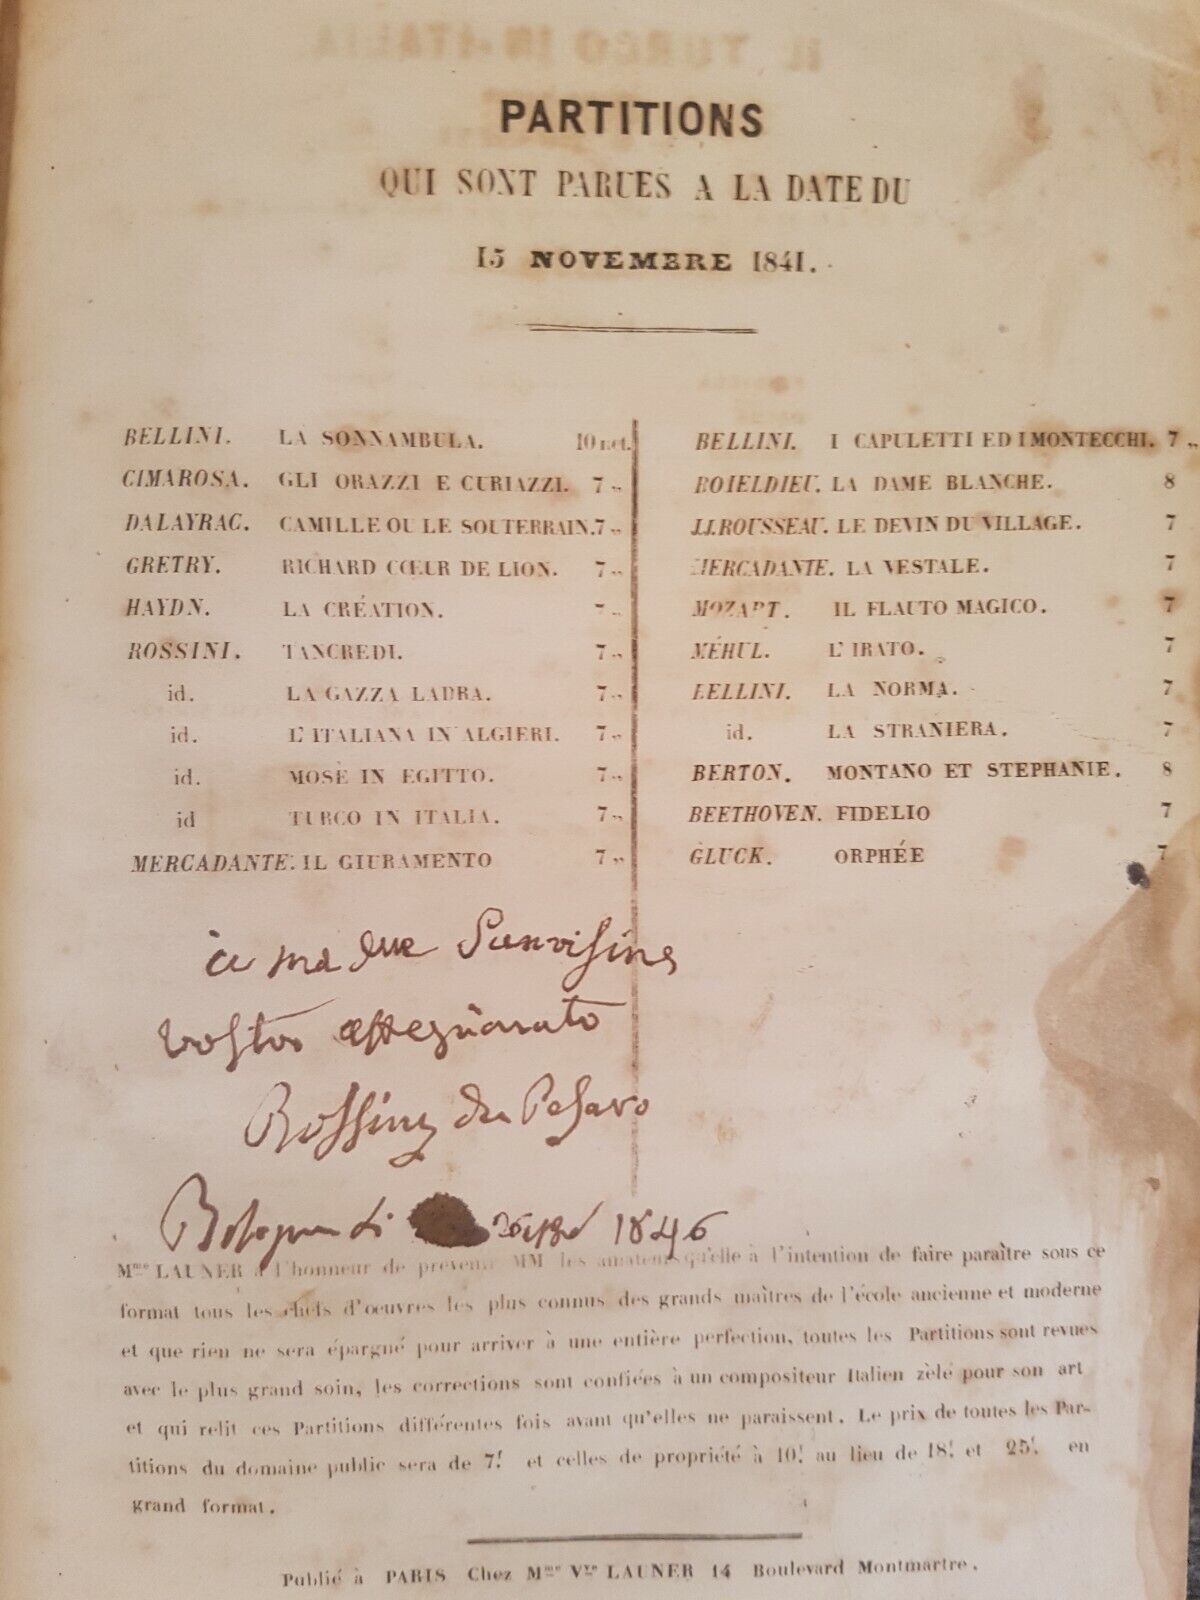 IL TURCO IN ITALIA
PARTITIONS
QUI SONT PARUES A LA DATE DU
15 NOVEMBRE 1841.
BELLINI. LA SONNAMBULA. 10 net.
CIMAROSA. GLI ORAZZI E CURIAZZI. 7 „
DALAYRAC. CAMILLE OU LE SOUTERRAIN. 7 „
GRETRY. RICHARD CŒUR DE LION. 7 „
HAYDN. LA CRÉATION. 7 „
ROSSINI. TANCREDI. 7 „
id. LA GAZZA LADRA. 7 „
id. L'ITALIANA IN ALGIERI. 7 „
id. MOSÈ IN EGITTO. 7 „
id TURCO IN ITALIA. 7 „
MERCADANTE. IL GIURAMENTO 7 „
BELLINI. I CAPULETTI ED I MONTECCHI. 7 „
BOIELDIEU. LA DAME BLANCHE. 8
J.J. ROUSSEAU. LE DEVIN DU VILLAGE. 7
MERCADANTE. LA VESTALE. 7
MOZART. IL FLAUTO MAGICO. 7
MÉHUL. L'IRATO. 7
BELLINI. LA NORMA. 7
id. LA STRANIERA. 7
BERTON. MONTANO ET STEPHANIE. 8
BEETHOVEN. FIDELIO 7
GLUCK. ORPHÉE 7
à ma
Rossini da Pesaro
Bologna li 1846
Mme LAUNER a l'honneur de prévenir MM les amateurs qu'elle à l'intention de faire paraître sous ce
format tous les chefs d'oeuvres les plus connus des grands maîtres de l'école ancienne et moderne
et que rien ne sera épargné pour arriver à une entière perfection, toutes les Partitions sont revues
avec le plus grand soin, les corrections sont confiées à un compositeur Italien zèlé pour son art
et qui relit ces Partitions différentes fois avant qu'elles ne paraissent. Le prix de toutes les Par-
titions du domaine public sera de 7f et celles de propriété à 10f au lieu de 18f et 25f en
grand format.
Publié à PARIS Chez Mme Vve LAUNER 14 Boulevard Montmartre.